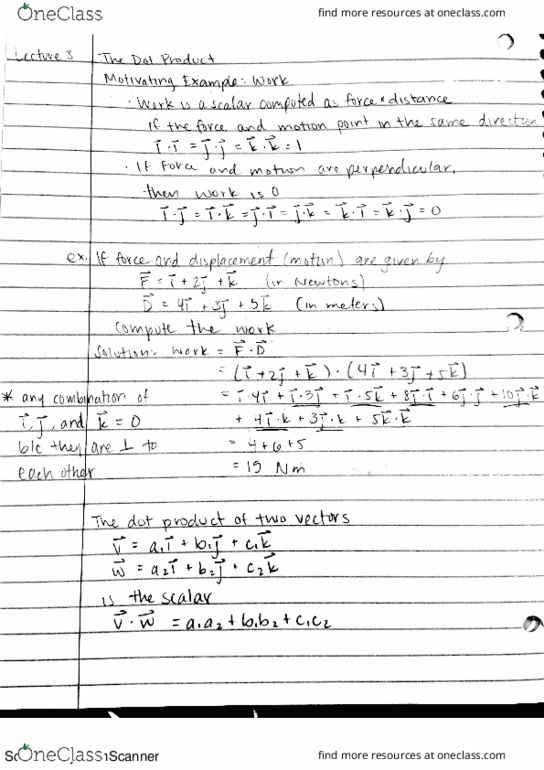 OneClass find more resources at oneclass.com
Lecture 3 The Dot Product
Motivating Example: Work
· Work is a scalar computed as force × distance
if the force and motion point in the same direction
i⃗ · i⃗ = j⃗ · j⃗ = k⃗ · k⃗ = 1
· If force and motion are perpendicular,
then work is 0
i⃗ · j⃗ = i⃗ · k⃗ = j⃗ · i⃗ = j⃗ · k⃗ = k⃗ · i⃗ = k⃗ · j⃗ = 0
ex. If force and displacement (motion) are given by
F⃗ = i⃗ + 2j⃗ + k⃗ (in Newtons)
D⃗ = 4i⃗ + 3j⃗ + 5k⃗ (in meters)
compute the work
Solution: work = F⃗ · D⃗
= (i⃗ + 2j⃗ + k⃗) · (4i⃗ + 3j⃗ + 5k⃗)
* any combination of = i⃗ · 4i⃗ + i⃗ · 3j⃗ + i⃗ · 5k⃗ + 8j⃗ · i⃗ + 6j⃗ · j⃗ + 10j⃗ · k⃗
i⃗, j⃗, and k⃗ = 0 + 4i⃗ · k + 3j⃗ · k + 5k⃗ · k⃗
b/c they are ⊥ to = 4+6+5
each other = 15 Nm
The dot product of two vectors
v⃗ = a₁i⃗ + b₁j⃗ + c₁k⃗
w⃗ = a₂i⃗ + b₂j⃗ + c₂k⃗
is the scalar
v⃗ · w⃗ = a₁a₂ + b₁b₂ + c₁c₂
OneClass Scanner find more resources at oneclass.com